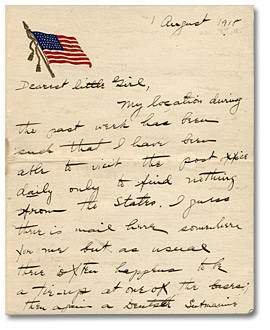 1 August 1918
Dearest little Girl,
My location during
the past week has been
such that I have been
able to visit the post office
daily only to find nothing
from the States. I guess
there is mail here somewhere
for me but as usual
there often happens to be
a tie-up at one of the bases;
then again a Deutsch Submarine